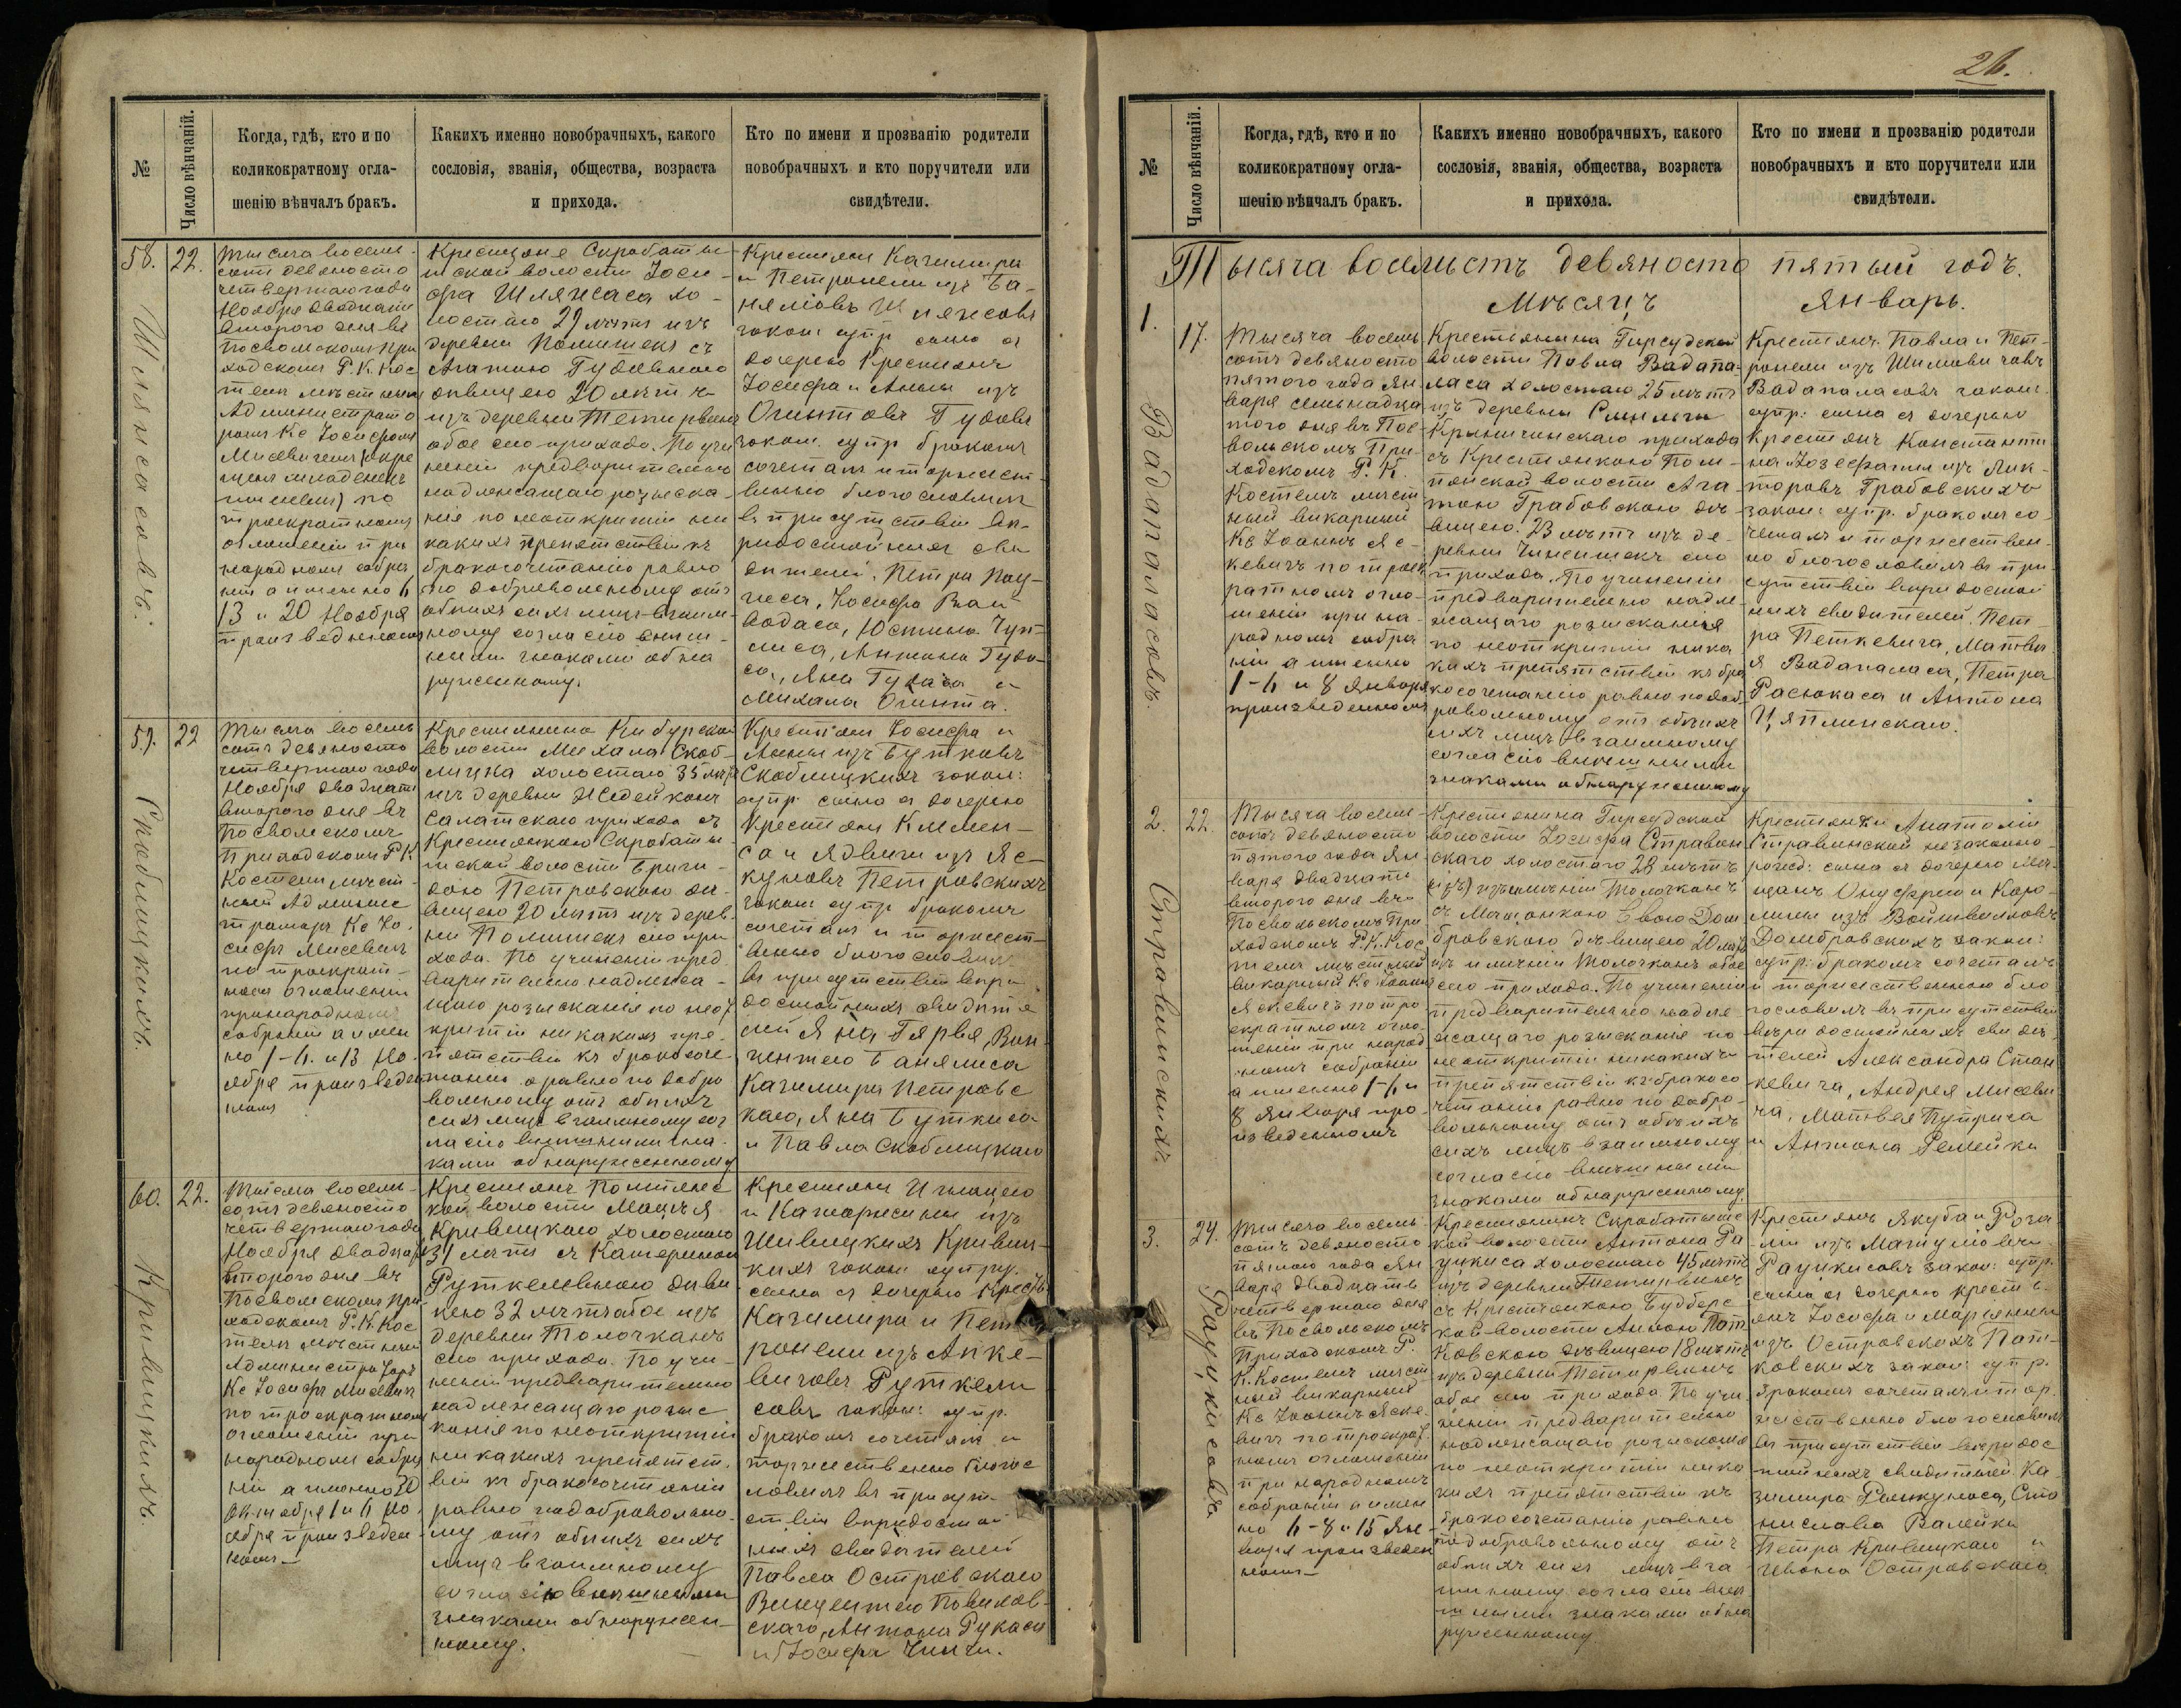 26.
№
Число вѣнчаній.
Когда, гдѣ, кто и по
коликократному огла-
шенію вѣнчалъ бракъ.
Какихъ именно новобрачныхъ, какого
сословія, званія, общества, возраста
и прихода.
Кто по имени и прозванію родители
новобрачныхъ и кто поручители или
свидѣтели.
58.
22.
Шлянсасовъ.
Тысяча восемь
сотъ девяносто
четвертаго года
Ноября двадцать
втораго дня въ
Посвольскомъ При
ходскомъ Р. К. Кос
теле мѣстным
Администрато
ромъ Кс Іосифомъ
Мисевичемъ
по
троекратномъ
оглашеніи при
народномъ собра
ніи а именно 6
13 и 20 Ноября
произведенномъ
Скробатыш
ской волости Іоси-
фа Шлянсаса хо-
лостаго 29 лѣтъ изъ
деревни Поматекъ съ
Агатою Гудовною
дѣвицею 20 лѣтъ
изъ деревни Тетирваны
обое сего прихода. По учи
неніи предварительно
надлежащаго розыска-
нія по неоткрытіи ни
какихъ препятствій къ
бракосочетанію равно
по добровольному отъ
обоихъ сихъ лицъ взаим
ному согласію внѣш-
ними знаками обна
руженному.
Крестьянъ Казимира
и Петронели изъ
закон: супр: сына съ
дочерью Крестьянъ
Іосифа и Анны изъ
Огинтовъ Гудовъ
закон. супр. бракомъ
сочеталъ и торжест-
венно благословилъ
въ присутствіи вѣ-
родостойныхъ сви
дѣтелей. Петра
Іосифа
Юстина
Антона Гудо-
са, Яна и
Михала Огинта.
59.
22
Скоблицкихъ.
Тысяча восемь
сотъ девяносто
четвертаго года
Ноября двадцать
втораго дня въ
Посвольскомъ
Приходскомъ Р. К.
Костеле мѣст
ный Админис
траторъ Кс Іо-
сифъ Мисевичъ
по троекрат-
номъ оглашеніи
принародномъ
собраніи а имен
но 1-6. и 13 Но-
ября произведен
номъ
Крестьянина Кибурской
волости Михала Скоб-
лицка холостаго 35 лѣтъ
изъ деревни
Салатскаго прихода съ
Крестьянкою Скробаты
шской волости Бриги-
дою Петровскою дѣ-
вицею 20 лѣтъ изъ дерев-
ни Поматекъ сего при
хода. По учиненіи пред
варительно надлежа-
щаго розысканія по неот
крытіи никакихъ пре-
пятствій къ бракосоче-
танію а равно по добро
вольному отъ обоихъ
сихъ лицъ взаимному сог
ласію внѣшними зна-
ками обнаруженному
Крестьянъ Іосифа и
Анны изъ Бутковъ
Скоблицкихъ закон:
супр: сына съ дочерью
Крестьянъ Климен-
са и Ядвиги изъ Яс-
куновъ Петровскихъ
закон. супр. бракомъ
сочеталъ и торжест-
венно благословилъ
въ присутствіи вѣро-
достойныхъ свидѣте
лей Яна Гярвя, Вин-
центаго
Казимира Петровс
каго, Яна Буткиса
и Павла Скоблицкаго
60.
22.
Кривицкихъ.
Тысяча восемь-
сотъ девяносто
четвертаго года
Ноября двадцать
втораго дня въ
Посвольскомъ при
ходскомъ Р. К. Кос
теле мѣстный
Администраторъ
Кс Іосифъ Мисевичъ
по троекратномъ
оглашеніи при
народномъ собра
ніи а именно 30
Октября 1 и 6 Но-
ября произведен
номъ.
Крестьянъ Помпянс
кой волости
Кривицкаго холостаго
31 лѣтъ съ Катериною
Руткелевною дѣви
цею 32 лѣтъ обое изъ
деревни Толочканъ
сего прихода. По учи-
неніи предварительно
надлежащаго розыс
канія по неоткрытіи
никакихъ препятст-
вій къ бракосочетанію
равно по добровольно-
му отъ обоихъ сихъ
лицъ взаимному
согласію внѣшними
знаками обнаружен-
ному.
Крестьянъ Игнатего
и Катарисины изъ
Шивицкихъ Кривиц-
кихъ закон супру.
сына съ дочерью Крест
Казимира и Пет
ронели изъ Апке-
вичовъ Руткели
совъ закон: супр.
бракомъ сочеталъ и
торжественно благос
ловилъ въ присут-
ствіи вѣродостой
ныхъ свидѣтелей
Павла Островскаго
Винцентего
Антона Рукаса
и Іосифа
№
Число вѣнчаній.
Когда, гдѣ, кто и по
коликократному огла-
шенію вѣнчалъ бракъ.
Какихъ именно новобрачныхъ, какого
сословія, званія, общества, возраста
и прихода.
Кто по имени и прозванію родители
новобрачныхъ и кто поручители или
свидѣтели.
Тысяча восемьсотъ девяносто пятый годъ.
Мѣсяцъ Январь.
1.
17.
Вадапаласовъ.
Тысяча восемь
сотъ девяносто
пятого года Ян
варя семьнадца
того дня въ Пос
вольскомъ При-
ходскомъ Р. К.
Костелѣ мѣст
ный викарный
Кс Іоаннъ Яс-
кевичъ по троек
ратномъ огла-
шеніи при на-
родномъ собра
ніи а именно
1-6 и 8 Января
произведенномъ
Крестьянина Гирсудской
волости Павла Вадапа-
ласа холостаго 25 лѣтъ
изъ деревни Смильги
Крыничинскаго прихода
съ Крестьянкою Пом-
пянской волости Ага-
тою Грабовскою дѣ-
вицею 23 лѣтъ изъ де-
ревни Чинсишекъ сего
прихода. По учиненіи
предварительно надле-
жащаго розысканія
по неоткрытіи ника
кихъ препятствій къ бра
косочетанію равно по доб-
ровольному отъ обоихъ
сихъ лицъ взаимному
согласію внѣшними
знаками обнаруженному
Крестьянъ Павла и Пет-
ронели изъ Шимовичовъ
Вадапаласовъ закон.
супр: сына съ дочерью
Крестьянъ Константи
на Іозефаты изъ Вик-
торовъ Грабовскихъ
закон: супр. бракомъ со
четалъ и торжествен-
но благословилъ въ при
сутствіи вѣродостой
ныхъ свидѣтелей. Пет-
ра Петкевича, Матвѣ
я Вадапаласа, Петра
Расюкаса и Антона
Цяплинскаго.
2.
22.
Стравинскихъ.
Тысяча восемь-
сотъ девяносто
пятого года Ян
варя двадцать
втораго дня въ
Посвольскомъ При
ходскомъ Р. К. Кос
теле мѣстный
викарный Кс Іоаннъ
Яскевичъ по тро
екратномъ огла-
шеніи при народ
номъ собраніи
а именно 1-6 и
8 Января про-
изведенномъ
Крестьянина Гирсудской
волости Іосифа Стравин
скаго холостаго 28 лѣтъ
изъ имѣнія Толочканъ
съ Мѣщанкою Евою Дом
бровскою дѣвицею 20 лѣтъ
изъ имѣнія Толочканъ обое
сего прихода. По учиненіи
предварительно надле-
жащаго розысканія по
неоткрытіи никакихъ
препятствій къ бракосо
четанію равно по добро-
вольному отъ обоихъ
сихъ лицъ взаимному
согласію внѣшними
знаками обнаруженному.
Крестьянки Анатоліи
Стравинской незаконно-
рожд: сына съ дочерью Мѣ-
щанъ Онуфрія и Каро-
лины изъ Войтвилловъ
Домбровскихъ закон:
супр: бракомъ сочеталъ
и торжественно бла
гословилъ въ присутствіи
вѣродостойныхъ свидѣ-
телей Александра Стан
кевича, Андрея Мисеви
ча, Матвея Путриса
и Антона Ремейки
3.
24.
Рауцкисовъ
Тысяча восемь-
сотъ девяносто
пятого года Ян
варя двадцать
четвертаго дня
въ Посвольскомъ
Приходскомъ Р.
К. Костелѣ мѣст
ный викарный
Кс Іоаннъ Яске-
вичъ по троекрат
номъ оглашеніи
при народномъ
собраніи а имен
но 6-8 и 15 Ян-
варя произведен
номъ
Крестьянина Скробатыш
кой волости Антона Ра
уцкиса холостаго 45 лѣтъ
изъ деревни Тетирвинъ
съ Крестьянкою Будберс-
кой волости Анною Пат
ковскою дѣвицею 18 лѣтъ
изъ деревни Тетирвинъ
обое сего прихода По учи
неніи предварительно
надлежащаго розысканія
по неоткрытіи ника
кихъ препятствій къ
бракосочетанію равно
по добровольному отъ
обоихъ сихъ лицъ вза
имному согласію внѣш
ними знаками обна
руженному
Крестьянъ Якуба и Роза-
ліи изъ Матулевичъ
Рауцкисовъ закон: супр.
сына съ дочерью кресть-
янъ Іосифа и Маріянны
изъ Островскихъ Пат-
ковскихъ закон: супр.
бракомъ сочеталъ и тор.
жественно благословилъ
въ присутствіи вѣродос
тойныхъ свидѣтелей Ка-
зимира Ста
нислава Валейки
Петра Кривицкаго и
Ивана Островскаго